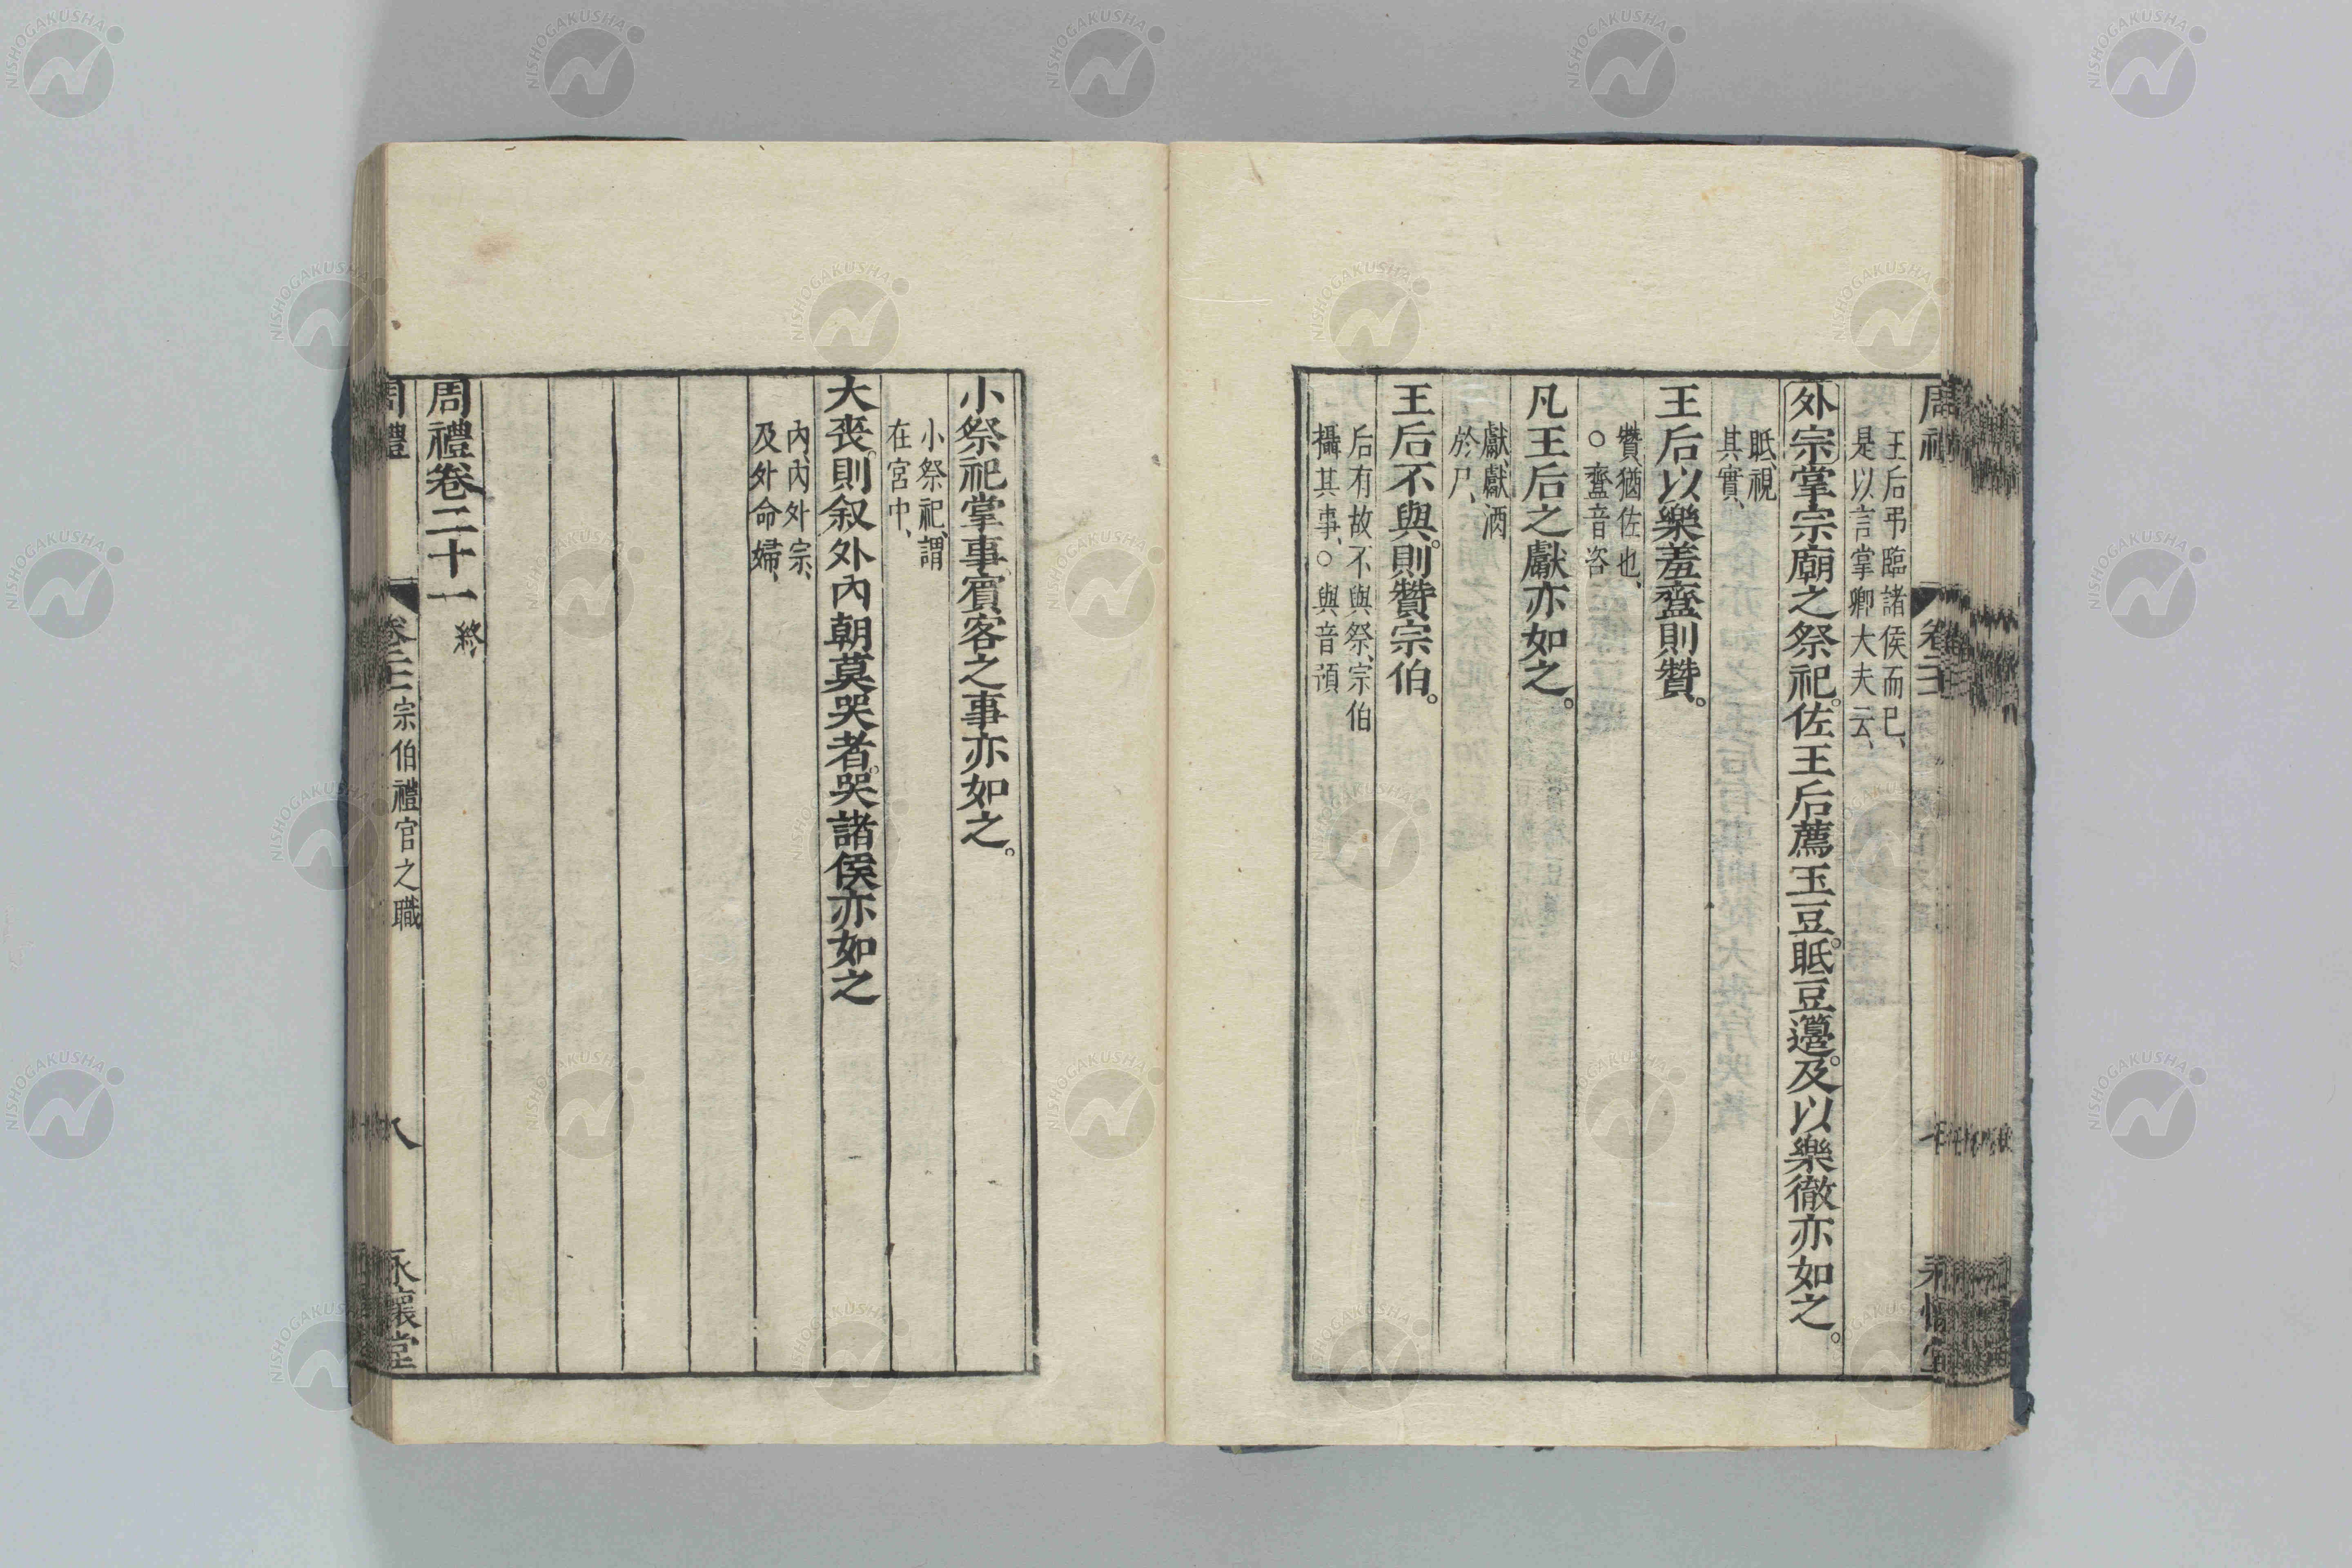 王后弔臨諸侯而已、
是以言掌卿大夫云、
外宗掌宗廟之祭祀。佐王后薦玉豆。眡豆籩。及以樂徹亦如之。
眡視
其實、
王后以樂羞齍則贊。
贊猶佐也、
○齍音咨
凡王后之獻亦如之。
獻獻酒
於尸、
王后不與。則贊宗伯。
后有故不與祭、宗伯
攝其事、○與音預
小祭祀掌事、賓客之事亦如之。
小祭祀、謂
在宮中、
大喪。則叙外內朝莫哭者。哭諸侯亦如之
內、內外宗、
及外命婦、
周禮卷二十一 終
周禮 卷二十一 宗伯禮官之職 八 永懷堂
NISHOGAKUSHA